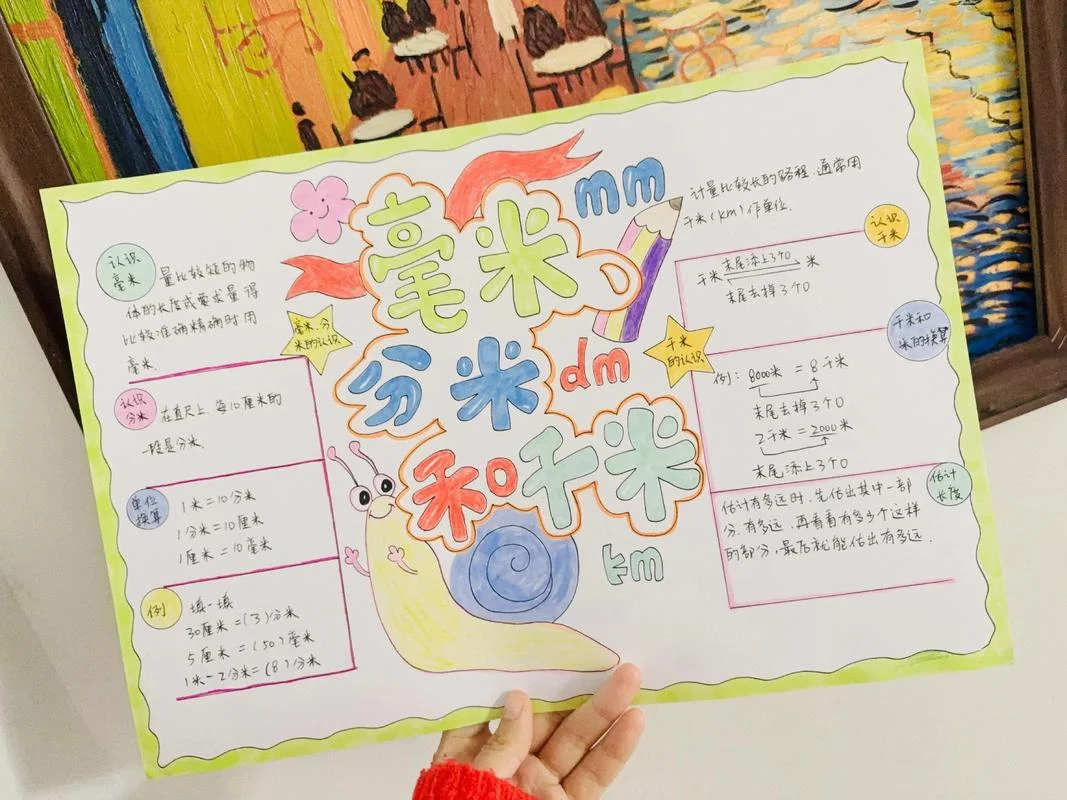 毫米
mm
分米
dm
和千米
km
毫米、分
米的认识
认识
毫米
量比较短的物
体的长度或要求量得
比较准确精确时用
毫米.
认识
分米
在直尺上,每10厘米的
一段是分米.
单位
换算
1米=10分米
1分米=10厘米
1厘米=10毫米
例
填一填
30厘米=(3)分米
5厘米=(50)毫米
1米-2分米=(8)分米
千米
的认识
计量比较长的路程,通常用
千米(km)作单位.
认识
千米
千米 末尾添上3个0 米
末尾去掉3个0
千米和
米的换算
例: 8000米 = 8千米
末尾去掉3个0
2千米=2000米
末尾添上3个0
估计
长度
估计有多远时,先估出其中一部
分有多远,再看看有多少个这样
的部分,最后就能估出有多远.